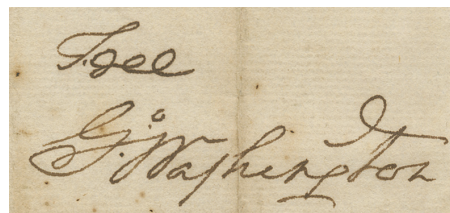 Free
G:º Washington